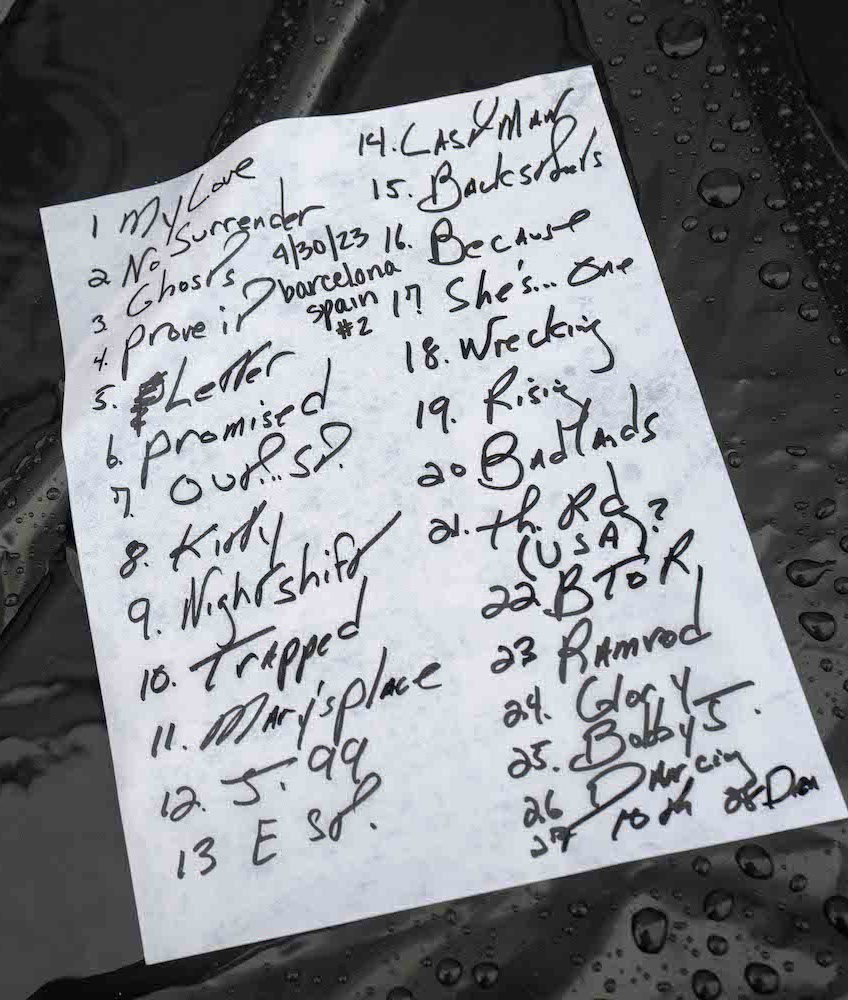 1 My Love
2. No Surrender
3 Ghosts
4. Prove it
5. Letter
6. promised
7. Out..St.
8. Kitty
9. Nightshift
10. Trapped
11. Mary's place
12. J. 99
13 E St.
4/30/23
barcelona
spain
#2
14. Last Man
15. Backstreets
16. Because
17 She's... One
18. Wrecking
19. Rising
20 Badlands
21. th. Rd ?
(USA)
22 B To R
23 Ramrod
24. Glory
25. Bobby J.
26 Dancing
27 10th 28